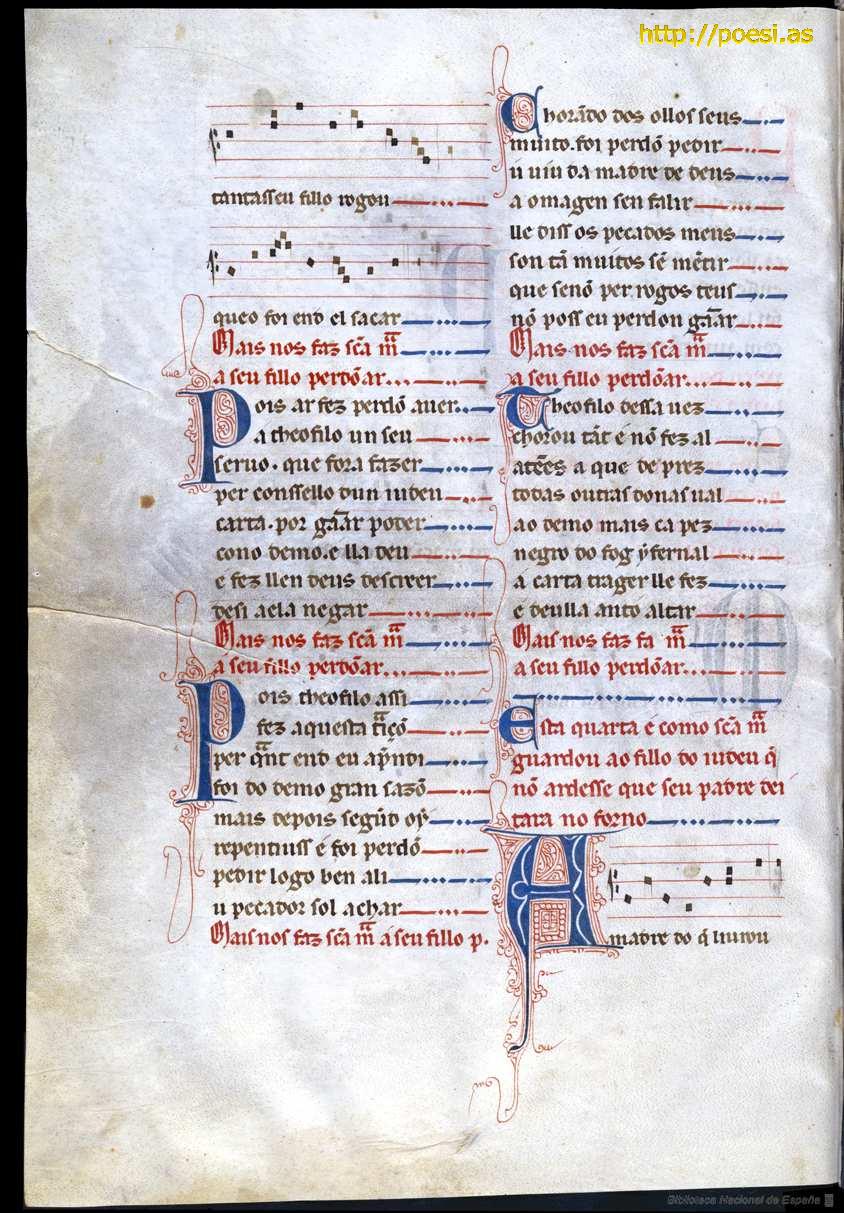 http://poesi.as
tantasseu fillo rogou
queo foi end el sacar
Mais nos faz sc̃a m̃a
a seu fillo perdõar
Pois ar fez perdõ auer
a theofilo un seu
seruo. que fora fazer
per conssello dun iudeu
carta. por gãar poder
cono demo. e lla deu
e fez llen deus descreer
desi aela negar
Mais nos faz sc̃a m̃a
a seu fillo perdõar
Pois theofilo assi
fez aquesta t̃içõ
per q̃nt end eu ap̃ndi
foi do demo gran sazõ
mais depois segũd oý
repentiuss e foi perdõ
pedir logo ben ali
u pecador sol achar
Mais nos faz sc̃a m̃a a seu fillo p.
Chorãdo dos ollos seus
muito. foi perdõ pedir
u uiu da madre de deus
a omagen sen falir
lle diss os pecados meus
son tã muitos sẽ mẽtir
que senõ per rogos teus
nõ poss eu perdon gãar
Mais nos faz sc̃a m̃a
a seu fillo perdõar
Theofilo dessa uez
chorou tãt e nõ fez al
atẽes a que de prez
todas outras donas ual
ao demo mais ca pez
negro do fog ỹfernal
a carta trager lle fez
e deulla ant o altar
Mais nos faz sa m̃a
a seu fillo perdõar
Esta quarta e como sc̃a m̃a
guardou ao fillo do iudeu q̃
nõ ardesse que seu padre dei
tara no forno
A madre do q̃ liurou
Biblioteca Nacional de España